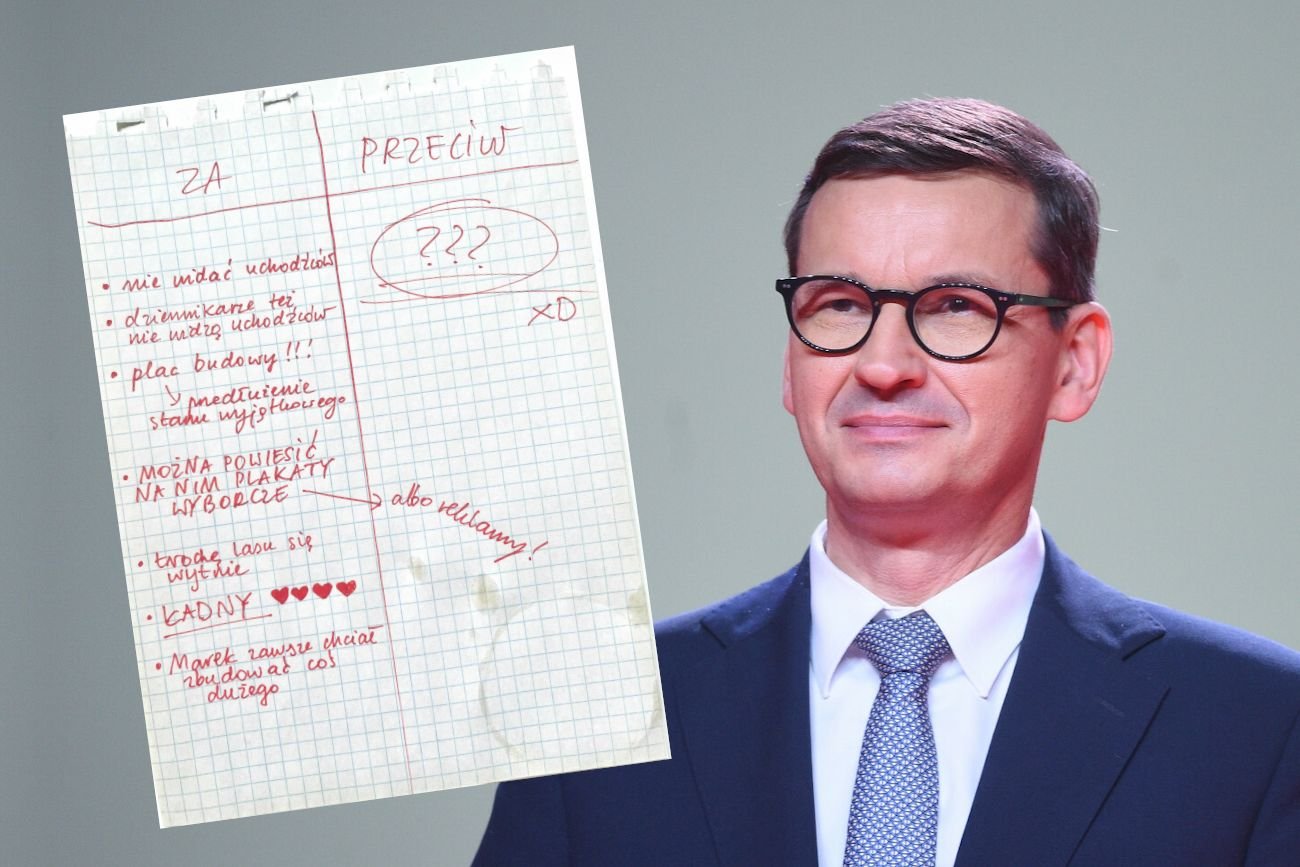 ZA
PRZECIW
• nie widać uchodźców
• dziennikarze też
nie widzą uchodźców
• plac budowy!!!
↘ przedłużenie
stanu wyjątkowego
• MOŻNA POWIESIĆ
NA NIM PLAKATY
WYBORCZE → albo reklamy!
• trochę lasu się
wytnie
• ŁADNY ♥♥♥♥
• Marek zawsze chciał
zbudować coś
dużego
???
XD